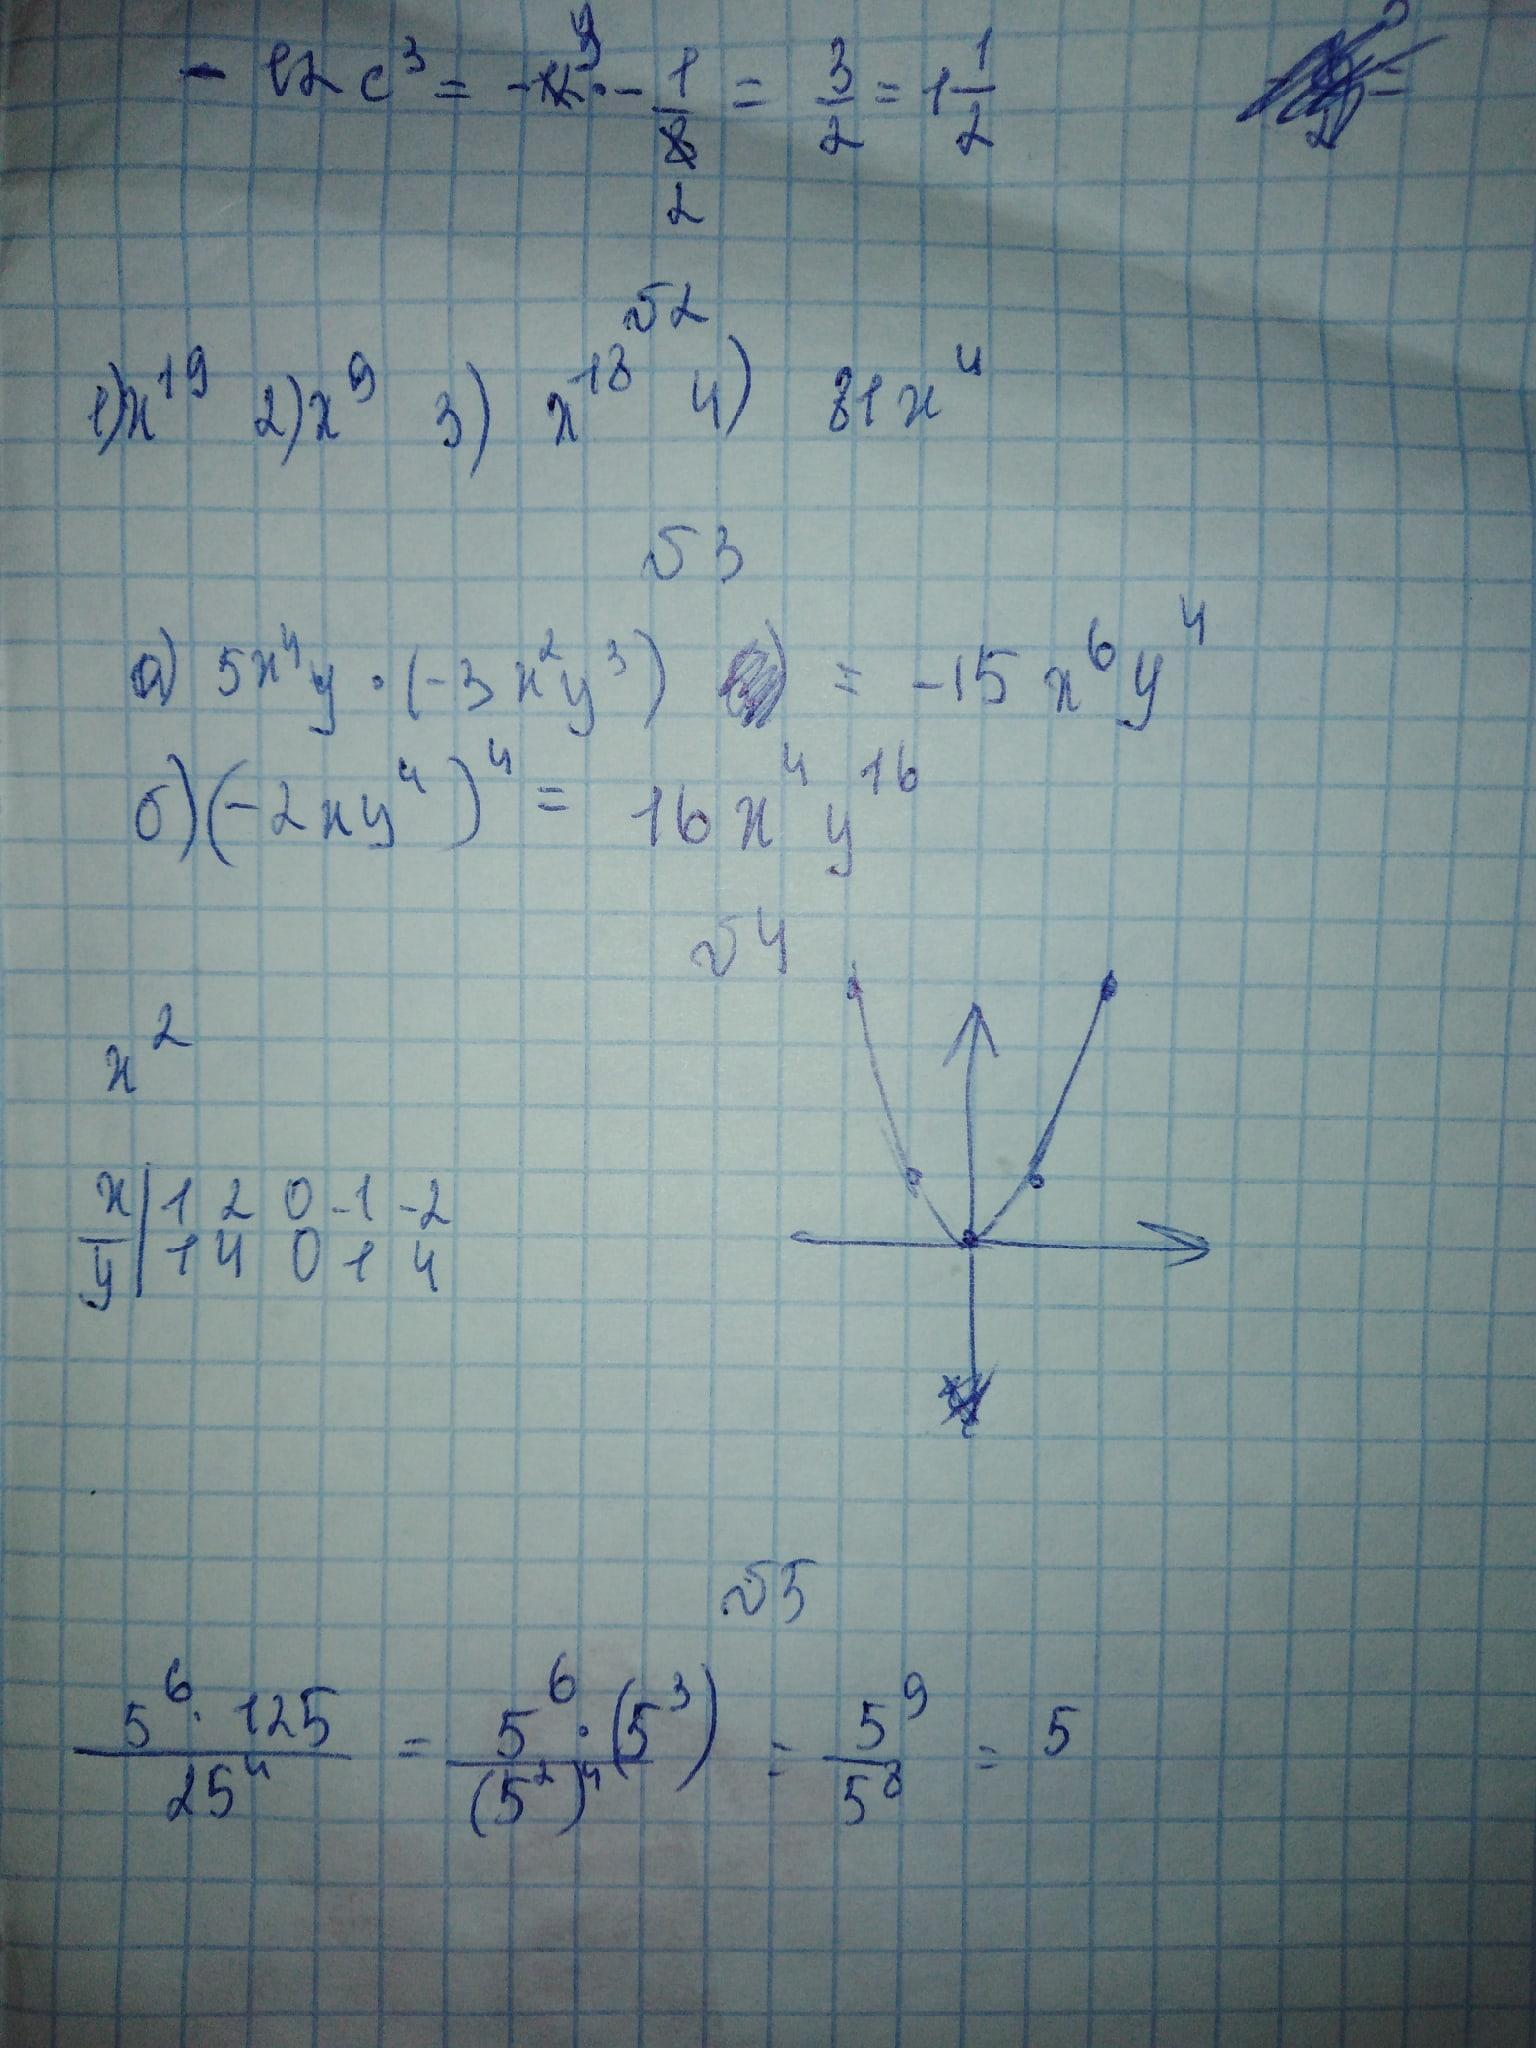 - 12c³ = -12³ · - 1/8 2 = 3/2 = 1 1/2
№2
1) x¹⁹ 2) x⁹ 3) x¹⁸ 4) 81x⁴
№3
а) 5x⁴y · (-3x²y³) = -15x⁶y⁴
б) (-2xy⁴)⁴ = 16x⁴y¹⁶
№4
x²
x | 1 2 0 -1 -2
y | 1 4 0 1 4
№5
5⁶ · 125 / 25⁴ = 5⁶ · (5³) / (5²)⁴ = 5⁹ / 5⁸ = 5